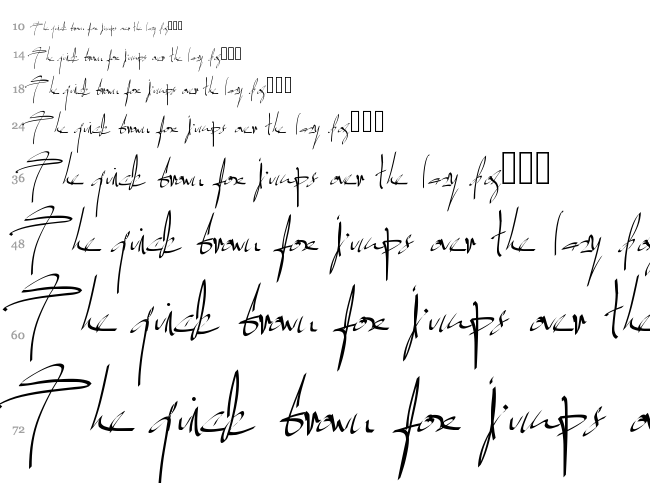 10 The quick brown fox jumps over the lazy dog
14 The quick brown fox jumps over the lazy dog
18 The quick brown fox jumps over the lazy dog
24 The quick brown fox jumps over the lazy dog
36 The quick brown fox jumps over the lazy dog
48 The quick brown fox jumps over the lazy dog
60 The quick brown fox jumps over the
72 The quick brown fox jumps o